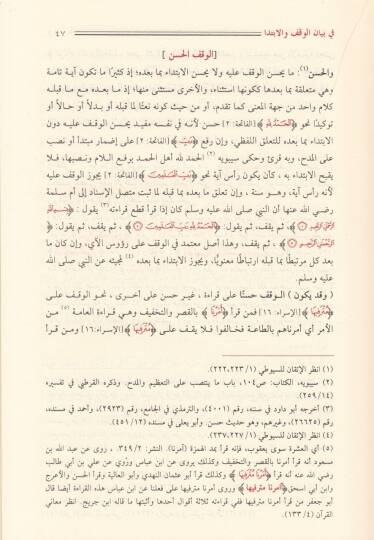 في بيان الوقف والابتدا ٤٧
[الوقف الحسن]
والحسن(١): ما يحسن الوقف عليه ولا يحسن الابتداء بما بعده؛ إذ كثيرًا ما تكون آية تامة
وهي متعلقة بما بعدها ككونها استثناء، والأخرى مستثنى منها؛ إذ ما بعده مع ما قبله
كلام واحد من جهة المعنى كما تقدم، أو من حيث كونه نعتًا لما قبله أو بدلاً أو حالاً أو
توكيدًا نحو ﴿الْحَمْدُ لِلَّهِ﴾ [الفاتحة: ٢] حسن لأنه في نفسه مفيد يحسن الوقف عليه دون
الابتداء بما بعده للتعلق اللفظي، وإن رفع ﴿رَبِّ﴾ [الفاتحة: ٢] على إضمار مبتدأ أو نصب
على المدح، وبه قرئ وحكى سيبويه(٢) الحمد لله أهل الحمد برفع الـلام ونصبها، فلا
يقبح الابتداء به، كأن يكون رأس آية نحو ﴿رَبِّ الْعَالَمِينَ﴾ [الفاتحة: ٢] يجوز الوقف عليه
لأنه رأس آية، وهـو سنة ، وإن تعلق ما بعده بما قبله لما ثبت متصل الإسناد إلى أم سلمة
رضي الله عنها أن النبي صلى الله عليه وسلم كان إذا قرأ قطع قراءته(٣) يقول : ﴿بِسْمِ اللَّهِ
الرَّحْمَنِ الرَّحِيمِ ۝﴾، ثم يقف، ثم يقول: ﴿الْحَمْدُ لِلَّهِ رَبِّ الْعَالَمِينَ ۝﴾ ، ثم يقف، ثم يقول: ﴿
الرَّحْمَنِ الرَّحِيمِ ۝﴾ ، ثم يقف، وهذا أصل معتمد في الوقف على رؤوس الآي، وإن كان ما
بعد كل مرتبطًا بما قبله ارتباطًا معنويًا، ويجوز الابتداء بما بعده(٤) لمجيئه عن النبي صلى الله
عليه وسلم.
( وقد يكون ) الـوقف حسنًا على قراءة ، غير حسن على أخـرى ، نحـو الوقف على
﴿مُتْرَفِيهَا﴾ [الإسراء: ١٦] فمن قرأ ﴿أَمَرْنَا﴾ بالقصر والتخفيف وهي قـراءة العامة(٥) من
الأمر أي أمرناهم بالطاعـة فخـالفوا فـلا يقـف علـى ﴿مُتْرَفِيهَا﴾ [الإسراء:١٦] ومـن قـرأ
(١) انظر الإتقان للسيوطي (١/ ٢٢٢،٢٢٣).
(٢) سيبويه، الكتاب: ص١٠٤، باب ما ينتصب على التعظيم والمدح. وذكره القرطبي في تفسيره
(١٤/ ٢٥٩).
(٣) أخرجه أبو داود في سننه، رقم (٤٠٠١)، والترمذي في الجامع، رقم (٢٩٢٣)، وأحمد في مسنده،
رقم (٢٦٦٢٥)، وغيرهم، وهو حديث حسن. وأبو يعلى في مسنده (١٢/ ٤٥١).
(٤) انظر الإتقان للسيوطي (١/ ٢٢٧،٢٣٧).
(٥) أي العشرة سوى يعقوب، فإنه قرأ بمد الهمزة (آمرنا). النشر: ٢/ ٣٤٩. ، روي عن عبد الله بن
مسعود أنه قرأ أمرنا بالقصر والتخفيف وكذلك يروى عن ابن عباس ورُوي عن علي بن أبي طالب
رضي الله عنه أنه قرأ ﴿أَمَرْنَا مُتْرَفِيهَا﴾ وكذلك قرأ أبو عثمان النهدي وأبو العالية وقرأ الحسن والأعرج
وابن أبي إسحق ﴿آمرنا مترفيها﴾ وروى آمرنا مترفيها على فعلنا عن ابن عباس هذه القراءة أيضا قال
أبو جعفر من قرأ أمرنا مترفيها ففي قراءته ثلاثة أقوال أحدها وأثبتها ما قاله ابن جريج. انظر معاني
القرآن (٤/ ١٣٣).